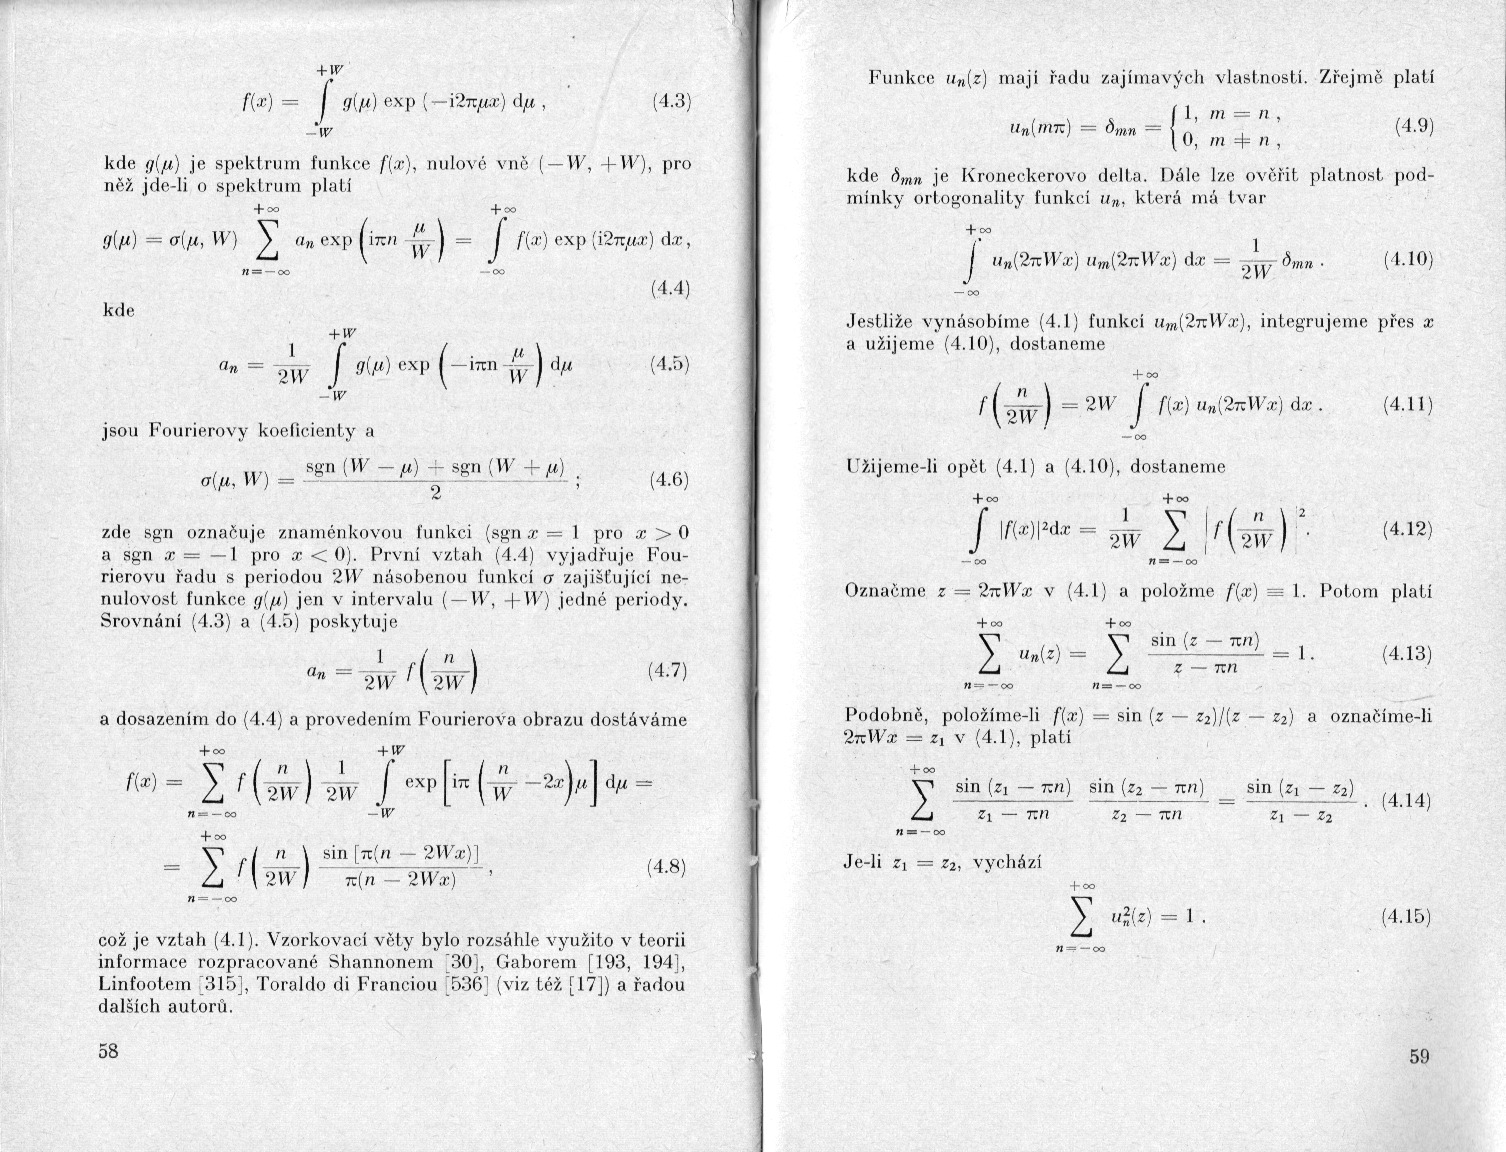 f(x) = ∫_{−W}^{+W} g(μ) exp (−i2πμx) dμ , (4.3)
kde g(μ) je spektrum funkce f(x), nulové vně (−W, +W), pro
něž jde-li o spektrum platí
g(μ) = σ(μ, W) ∑_{n=−∞}^{+∞} aₙ exp (iπn μ/W) = ∫_{−∞}^{+∞} f(x) exp (i2πμx) dx,
(4.4)
kde
aₙ = 1/2W ∫_{−W}^{+W} g(μ) exp (−iπn μ/W) dμ (4.5)
jsou Fourierovy koeficienty a
σ(μ, W) = (sgn (W − μ) + sgn (W + μ))/2 ; (4.6)
zde sgn označuje znaménkovou funkci (sgn x = 1 pro x > 0
a sgn x = −1 pro x < 0). První vztah (4.4) vyjadřuje Fou-
rierovu řadu s periodou 2W násobenou funkcí σ zajišťující ne-
nulovost funkce g(μ) jen v intervalu (−W, +W) jedné periody.
Srovnání (4.3) a (4.5) poskytuje
aₙ = 1/2W f(n/2W) (4.7)
a dosazením do (4.4) a provedením Fourierova obrazu dostáváme
f(x) = ∑_{n=−∞}^{+∞} f(n/2W) 1/2W ∫_{−W}^{+W} exp [iπ (n/W −2x)μ] dμ =
= ∑_{n=−∞}^{+∞} f(n/2W) sin [π(n − 2Wx)]/π(n − 2Wx) , (4.8)
což je vztah (4.1). Vzorkovací věty bylo rozsáhle využito v teorii
informace rozpracované Shannonem [30], Gaborem [193, 194],
Linfootem [315], Toraldo di Franciou [536] (viz též [17]) a řadou
dalších autorů.
58
Funkce uₙ(z) mají řadu zajímavých vlastností. Zřejmě platí
uₙ(mπ) = δₘₙ = { 1, m = n , 0, m ≠ n , (4.9)
kde δₘₙ je Kroneckerovo delta. Dále lze ověřit platnost pod-
mínky ortogonality funkcí uₙ, která má tvar
∫_{−∞}^{+∞} uₙ(2πWx) uₘ(2πWx) dx = 1/2W δₘₙ . (4.10)
Jestliže vynásobíme (4.1) funkcí uₘ(2πWx), integrujeme přes x
a užijeme (4.10), dostaneme
f(n/2W) = 2W ∫_{−∞}^{+∞} f(x) uₙ(2πWx) dx . (4.11)
Užijeme-li opět (4.1) a (4.10), dostaneme
∫_{−∞}^{+∞} |f(x)|²dx = 1/2W ∑_{n=−∞}^{+∞} |f(n/2W)|². (4.12)
Označme z = 2πWx v (4.1) a položme f(x) ≡ 1. Potom platí
∑_{n=−∞}^{+∞} uₙ(z) = ∑_{n=−∞}^{+∞} sin (z − πn)/(z − πn) = 1. (4.13)
Podobně, položíme-li f(x) = sin (z − z₂)/(z − z₂) a označíme-li
2πWx = z₁ v (4.1), platí
∑_{n=−∞}^{+∞} sin (z₁ − πn)/(z₁ − πn) sin (z₂ − πn)/(z₂ − πn) = sin (z₁ − z₂)/(z₁ − z₂) . (4.14)
Je-li z₁ = z₂, vychází
∑_{n=−∞}^{+∞} uₙ²(z) = 1 . (4.15)
59